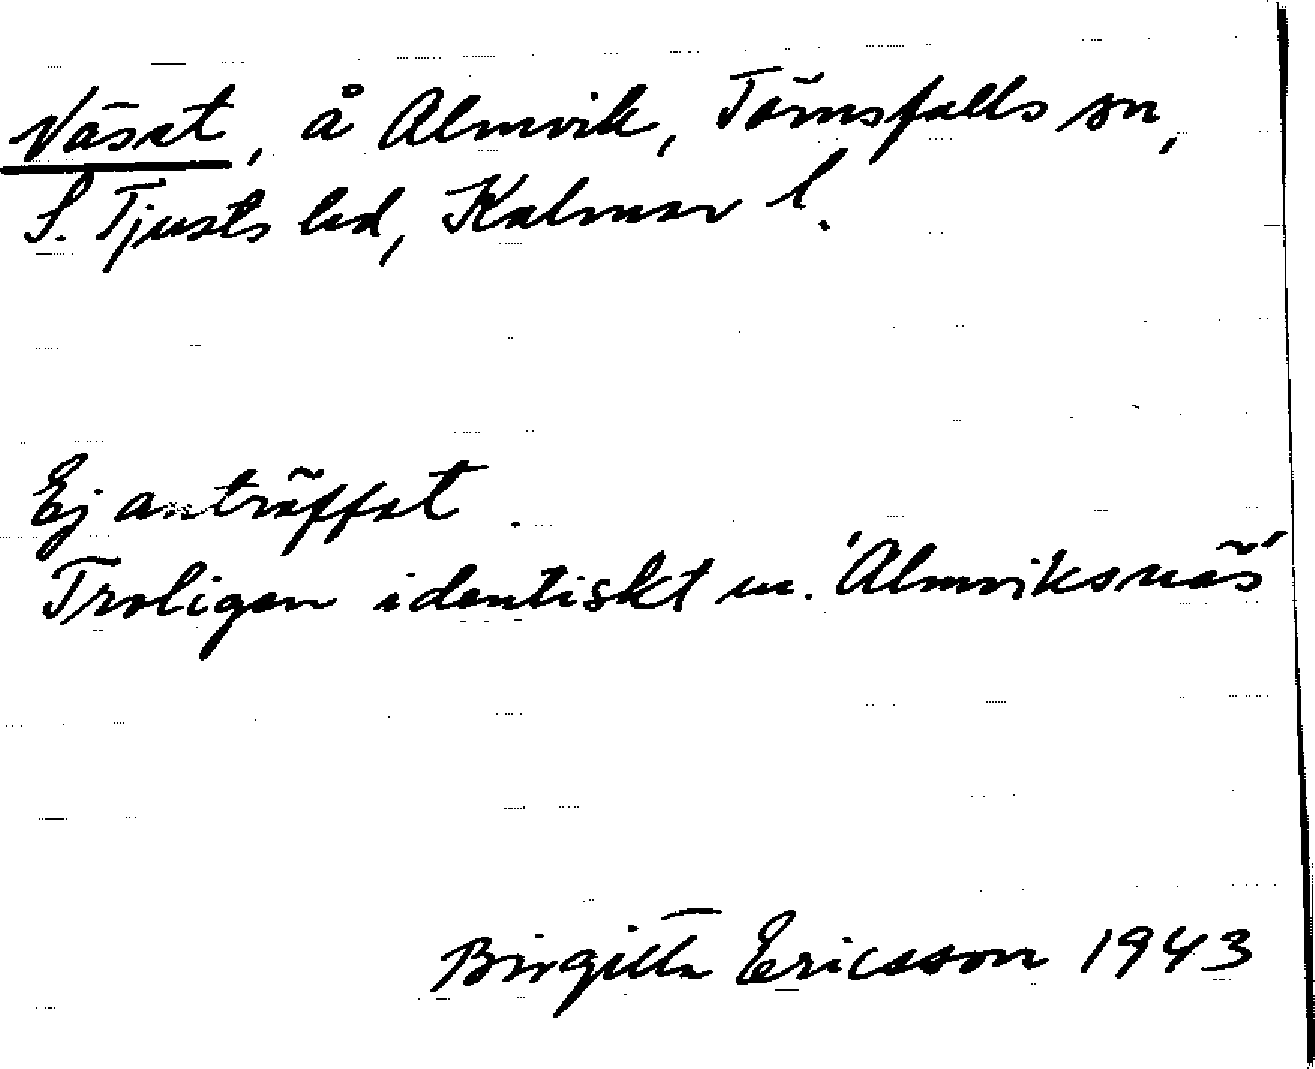 Näsat, å Almvik, Törnsfalls sn,
S. Tjusts hd, Kalmar l.
Ej anträffat
Troligen identiskt m. 'Almviksnäs'
Birgitta Ericsson 1943